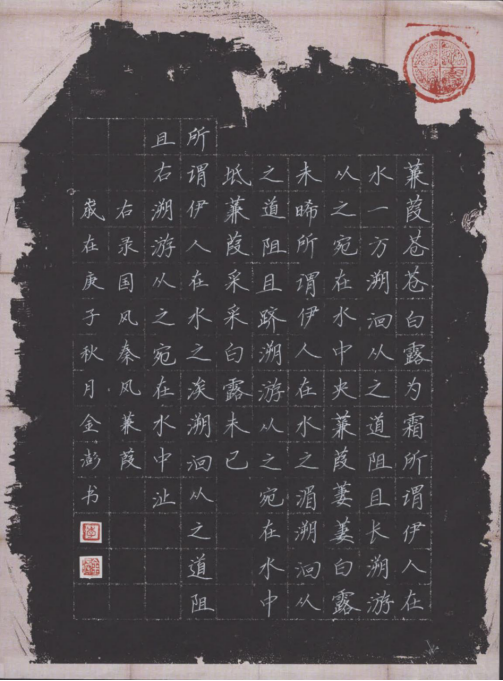 蒹葭苍苍白露为霜所谓伊人在
水一方溯洄从之道阻且长溯游
从之宛在水中央蒹葭萋萋白露
未晞所谓伊人在水之湄溯洄从
之道阻且跻溯游从之宛在水中
坻蒹葭采采白露未已
所谓伊人在水之涘溯洄从之道阻
且右溯游从之宛在水中沚
右录国风秦风蒹葭
岁在庚子秋月金澎书